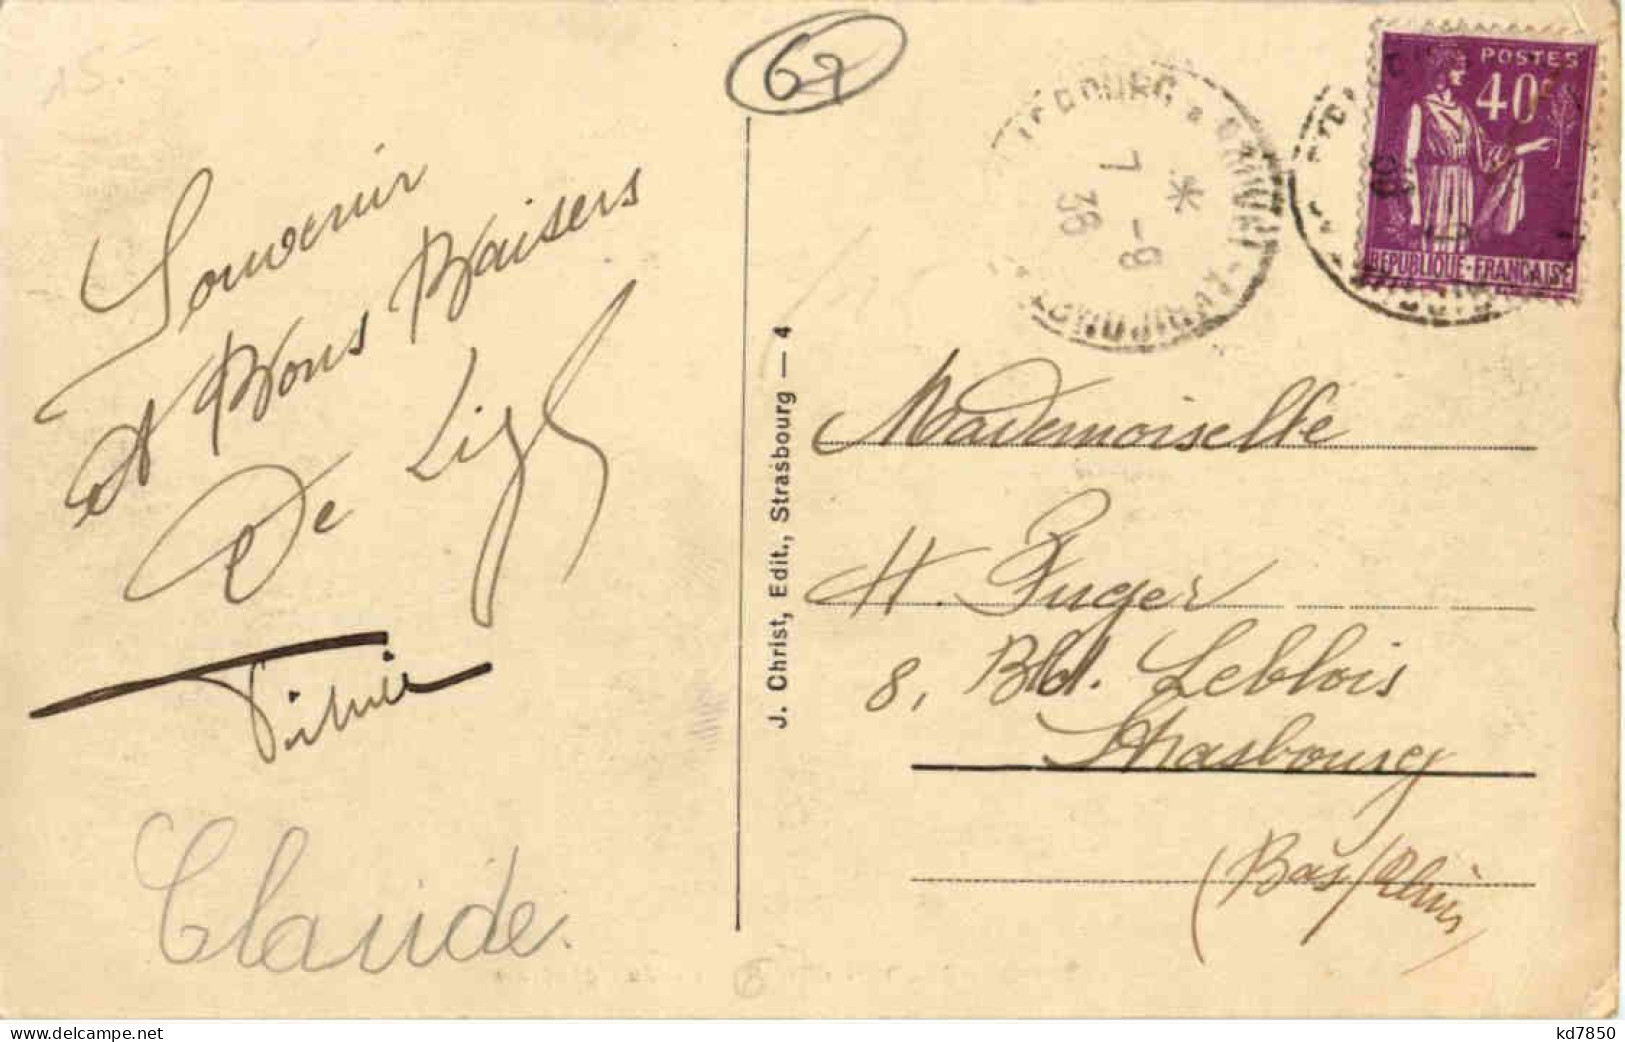 15.
69
Souvenir
et Bons Baisers
De
Claude.
J. Christ, Edit., Strasbourg — 4
7 -9
36
POSTES
40c
REPUBLIQUE-FRANÇAISE
Mademoiselle
H. Fuger
8, Bld. Leblois
Strasbourg
(Bas/Rhin)
www.delcampe.net
kd7850